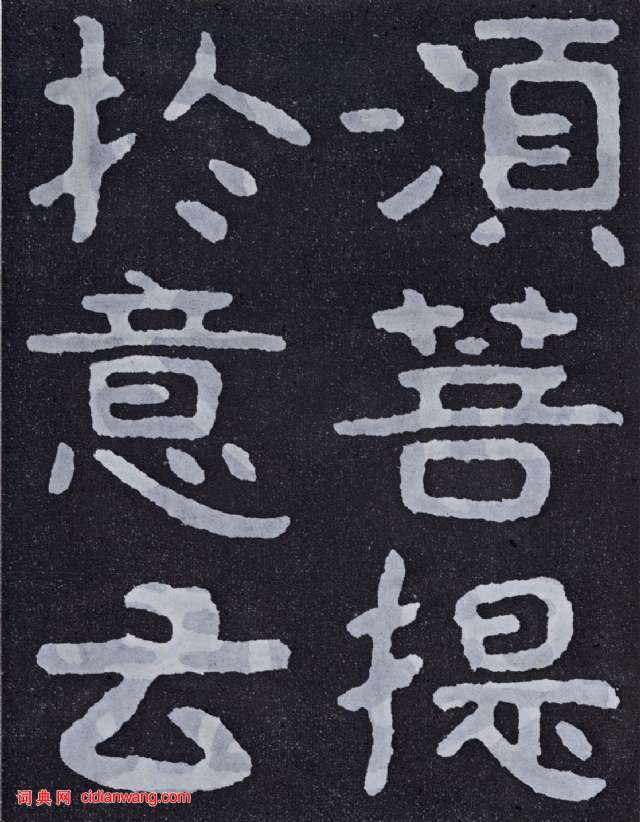 須菩提
於意云
词典网 cidianwang.com